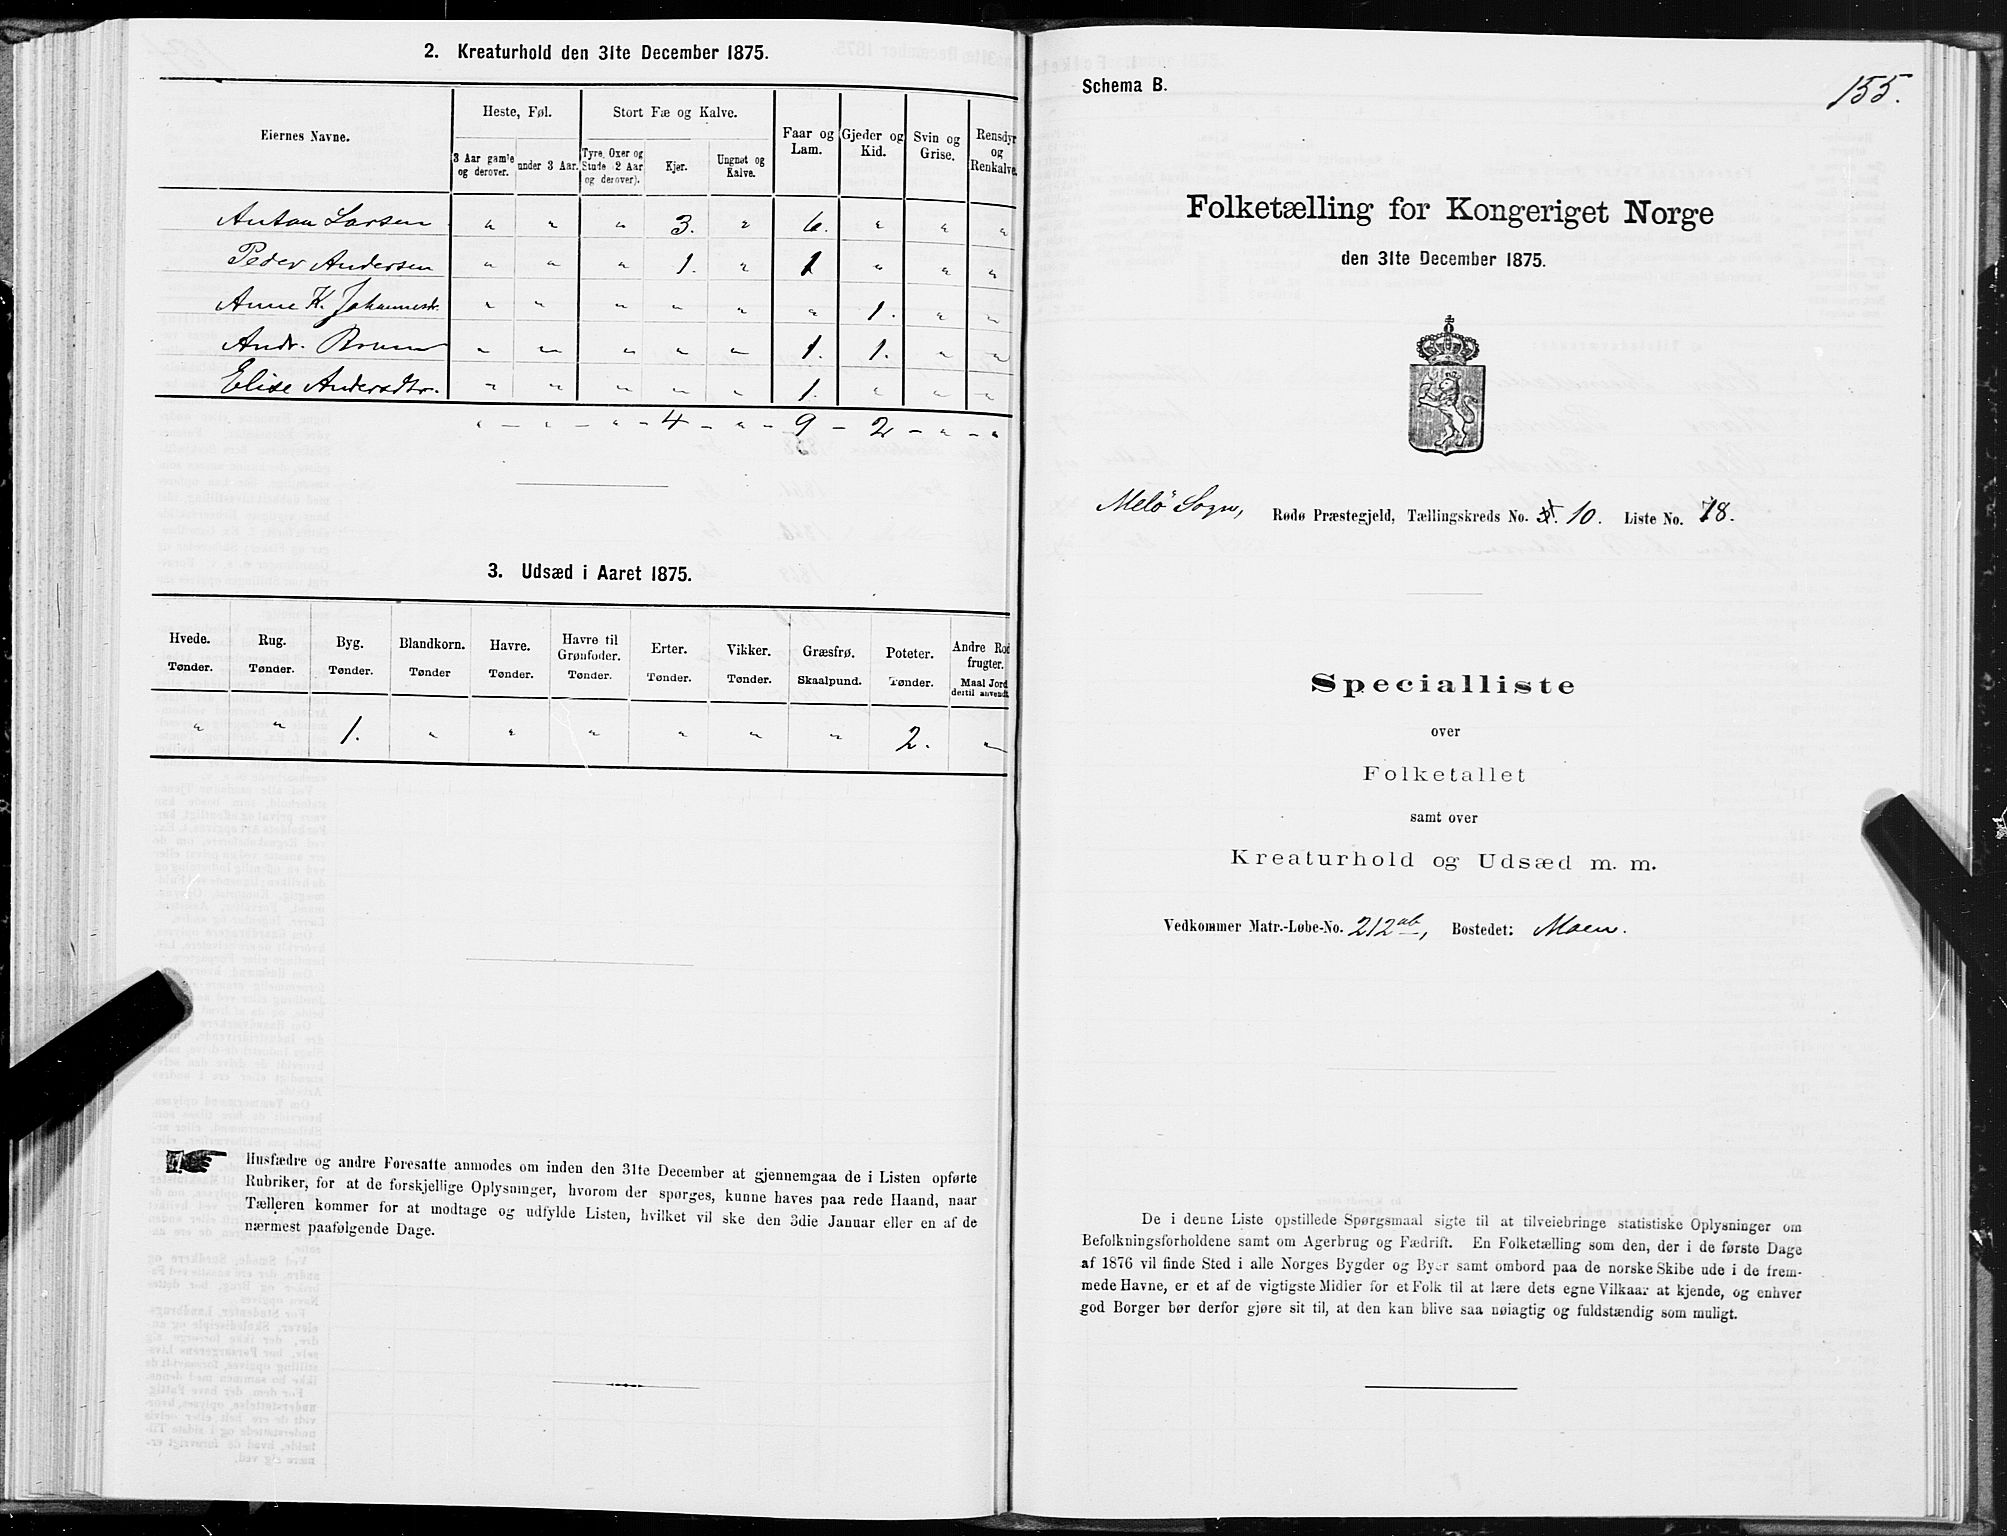 2. Kreaturhold den 31te December 1875.
Eiernes Navne.
Heste, Føl.
Stort Fæ og Kalve.
Faar og Lam.
Gjeder og Kid.
Svin og Grise.
Rensdyr og Renkalve.
3 Aar gamle og derover.
under 3 Aar.
Tyre, Oxer og Stude (2 Aar og derover).
Kjør.
Ungnøt og Kalve.
Anton Larsen " " " 3. " 6. " " "
Peder Andersen " " " 1. " 1 " " "
Anne K. Johannesdr. " " " " " " 1. " "
Andr. Bruun " " " " " 1. 1. " "
Elise Andersdtr. " " " " " 1. " " "
" — " — " — 4 — " — 9 — 2 — " — "
3. Udsæd i Aaret 1875.
Hvede. Rug. Byg. Blandkorn. Havre. Havre til Grønfoder. Erter. Vikker. Græsfrø. Poteter. Andre Rodfrugter.
Tønder. Tønder. Tønder. Tønder Tønder. Tønder. Tønder. Tønder. Skaalpund. Tønder. Maal Jord dertil anvendt
" " 1. " " " " " " 2. "
Husfædre og andre Foresatte anmodes om inden den 31te December at gjennemgaa de i Listen opførte
Rubriker, for at de forskjellige Oplysninger, hvorom der spørges, kunne haves paa rede Haand, naar
Tælleren kommer for at modtage og udfylde Listen, hvilket vil ske den 3die Januar eller en af de
nærmest paafølgende Dage.
Schema B.
155.
Folketælling for Kongeriget Norge
den 31te December 1875.
Melö Sogn, Rødø Præstegjeld, Tællingskreds No. 10. Liste No. 78.
Specialliste
over
Folketallet
samt over
Kreaturhold og Udsæd m. m.
Vedkommer Matr.-Løbe-No. 212ab, Bostedet: Moen.
De i denne Liste opstillede Spørgsmaal sigte til at tilveiebringe statistiske Oplysninger om
Befolkningsforholdene samt om Agerbrug og Fædrift. En Folketælling som den, der i de første Dage
af 1876 vil finde Sted i alle Norges Bygder og Byer samt ombord paa de norske Skibe ude i de frem-
mede Havne, er et af de vigtigste Midler for et Folk til at lære dets egne Vilkaar at kjende, og enhver
god Borger bør derfor gjøre sit til, at den kan blive saa nøiagtig og fuldstændig som muligt.